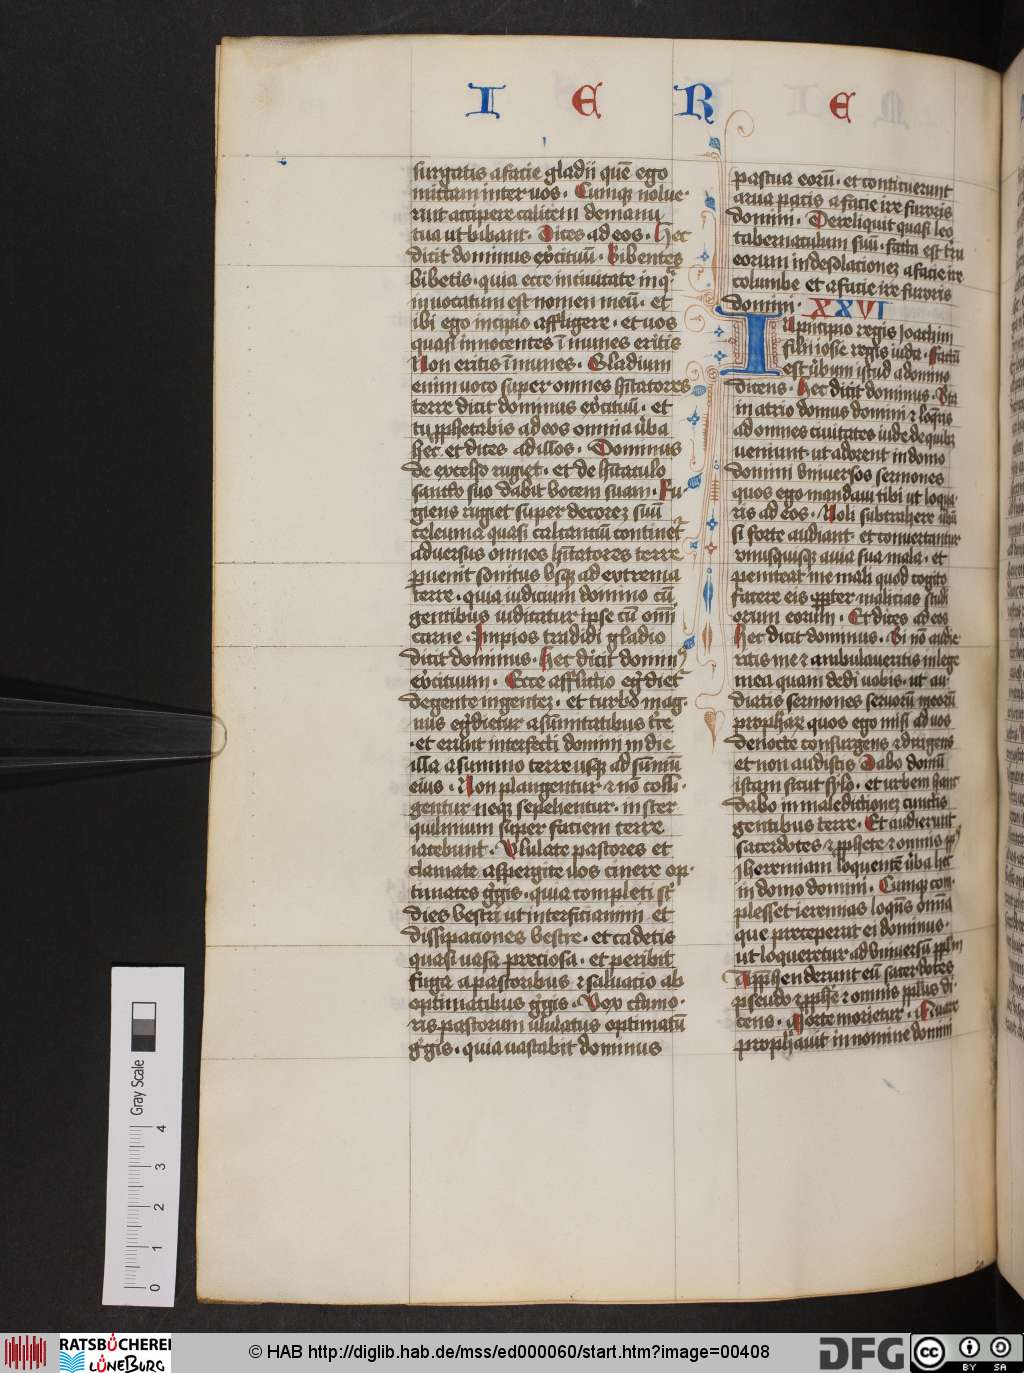 I E R E
surgatis a facie gladii quē ego
mittam inter uos · Cumq; nolue·
rint accipere calicem de manu
tua ut bibant · Dices ad eos · Hec
dicit dominus ex̄cituū · Bibentes
bibetis · quia ecce in ciuitate in q̄
inuocatum est nomen meū · et
ibi ego incipio affligere · et uos
quasi innocentes ī munes eritis
Non eritis īmunes · Gladium
enim uoco super omnes hītatores
terre dicit dominus ex̄cituū · et
tu ꝓphetabis ad eos omnia ūba
hec et dices ad illos · Dominus
de excelso rugiet · et de hītaculo
sancto suo dabit vocem suam · Ru
giens rugiet super decorez suū
celeuma quasi calcantiū continet᷑
aduersus omnes hītatores terre
ꝑuenit sonitus vsq; ad extrema
terre · quia iudicium domino cū
gentibus iudicatur ipse cū omī
carne · Impios tradidi gladio
dicit dominus · Hec dicit domin9
ex̄cituum · Ecce afflictio eḡdiet᷑
de gente in gentez · et turbo mag·
nus eḡdietur a sūmitatibus tr̄e
· et erunt interfecti domini in die
illa a summo terre usq; ad sūmū
eius · Non plangentur ⁊ nō colli·
gentur neq; sepelientur · in ster
quilinium super faciem terre
iacebunt · Vlulate pastores et
clamate aspergite uos cinere op·
timates gᷓgis · quia completi sūt
dies vestri ut interficiamini et
dissipaciones vestre · et cadetis
quasi uasa preciosa · et peribit
fuga a pastoribus ⁊ saluatio ab
optimatibus gᷓgis · Vox clamo·
ris pastorum ululatus optimatū
gᷓgis · quia uastabit dominus
pascua eorū · et conticuerunt
arua pacis a facie ire furoris
domini · Dereliquit quasi leo
tabernaculum suū · facta est t̄ra
eorum in desolacionez a facie ire
columbe et a facie ire furoris
domini · XXVI
In principio regis Joachim
filii iosie regis iuda · Factū
est ūbum istud a domino
dicens · Hec dicit dominus · Sta
in atrio domus domini ⁊ loq̄ris
ad omnes ciuitates iude de quib;
ueniunt · ut adorent in domo
domini vniuersos sermones
quos ego mandaui tibi ut loqua·
ris ad eos · Noli subtrahere ūbū
si forte audiant · et conuertantur
vnusquisq; a uia sua mala · et
peniteat me mali quod cogito
facere eis ꝓpter malicias studi
orum eorum · Et dices ad eos
Hec dicit dominus · Si nō audie
ritis me ⁊ ambulaueritis in lege
mea quam dedi uobis · ut au·
diatis sermones seruorū meorū
prophaꝝ quos ego misi ad uos
de nocte consurgens ⁊ dirigens
et non audistis Dabo domū
istam sicut sylo · et urbem hanc
dabo in maledictionez cunctis
gentibus terre · Et audierunt
sacerdotes ⁊ ꝓphete ⁊ omnis ppls
Jheremiam loquentē ūba hec
in domo domini · Cumq; com·
plesset ieremias loq̄ns omīa
que preceperat ei dominus ·
ut loqueretur ad vniuersū pplm
Apphenderunt eū sacerdotes
pseudo ⁊ ꝓphe ⁊ omnis pplus di·
cens · Morte morietur · Quare
prophauit in nomine domini
Gray Scale
0 1 2 3 4
RATSBÜCHEREI LÜNEBURG
© HAB http://diglib.hab.de/mss/ed000060/start.htm?image=00408
DFG
cc BY SA